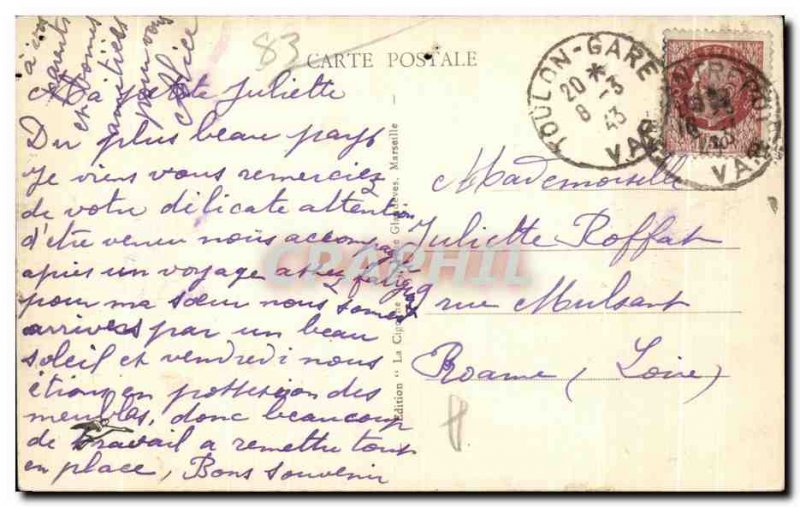 83
CARTE POSTALE
TOULON-GARE
20 *
8 -3
43
VAR
VAR
à vos
et
amitiés
pour vous
Alice
A petite Juliette
Du plus beau pays
je viens vous remercier
de votre délicate attention
d'être venu nous accompagner
après un voyage assez
pour ma sœur nous sommes
arrivées par un beau
soleil et vendredi nous
étions en possession des
meubles, donc beaucoup
de travail a remettre tous
en place, Bons souvenir
Mademoiselle
Juliette Roffat
9 rue Mulsant
Roanne (Loire)
Edition "La Cigogne" Glandèves, Marseille
CPAPHIL